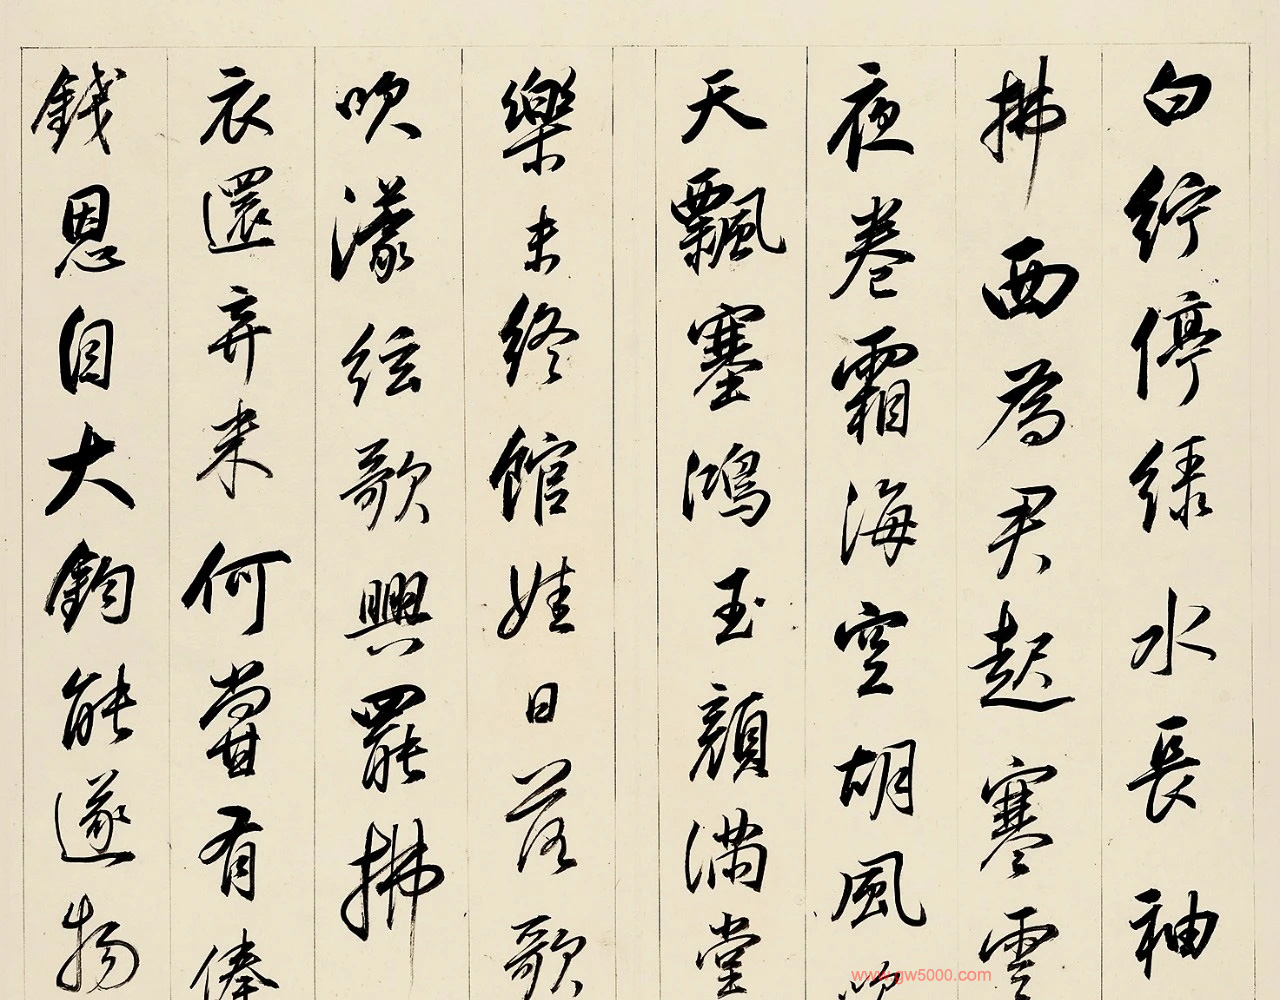 白紵停綠水長袖
拂面為君起寒雲
夜卷霜海空胡風吹
天飄塞鴻玉顏滿堂
樂未終館娃日落歌
吹濛絃歌興罷拂
衣還弃来何嘗有俸
錢恩自大鈞能遂物
www.gw5000.com